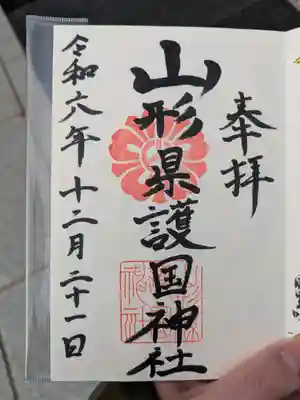 奉拝
山形県護国神社
令和六年十二月二十一日